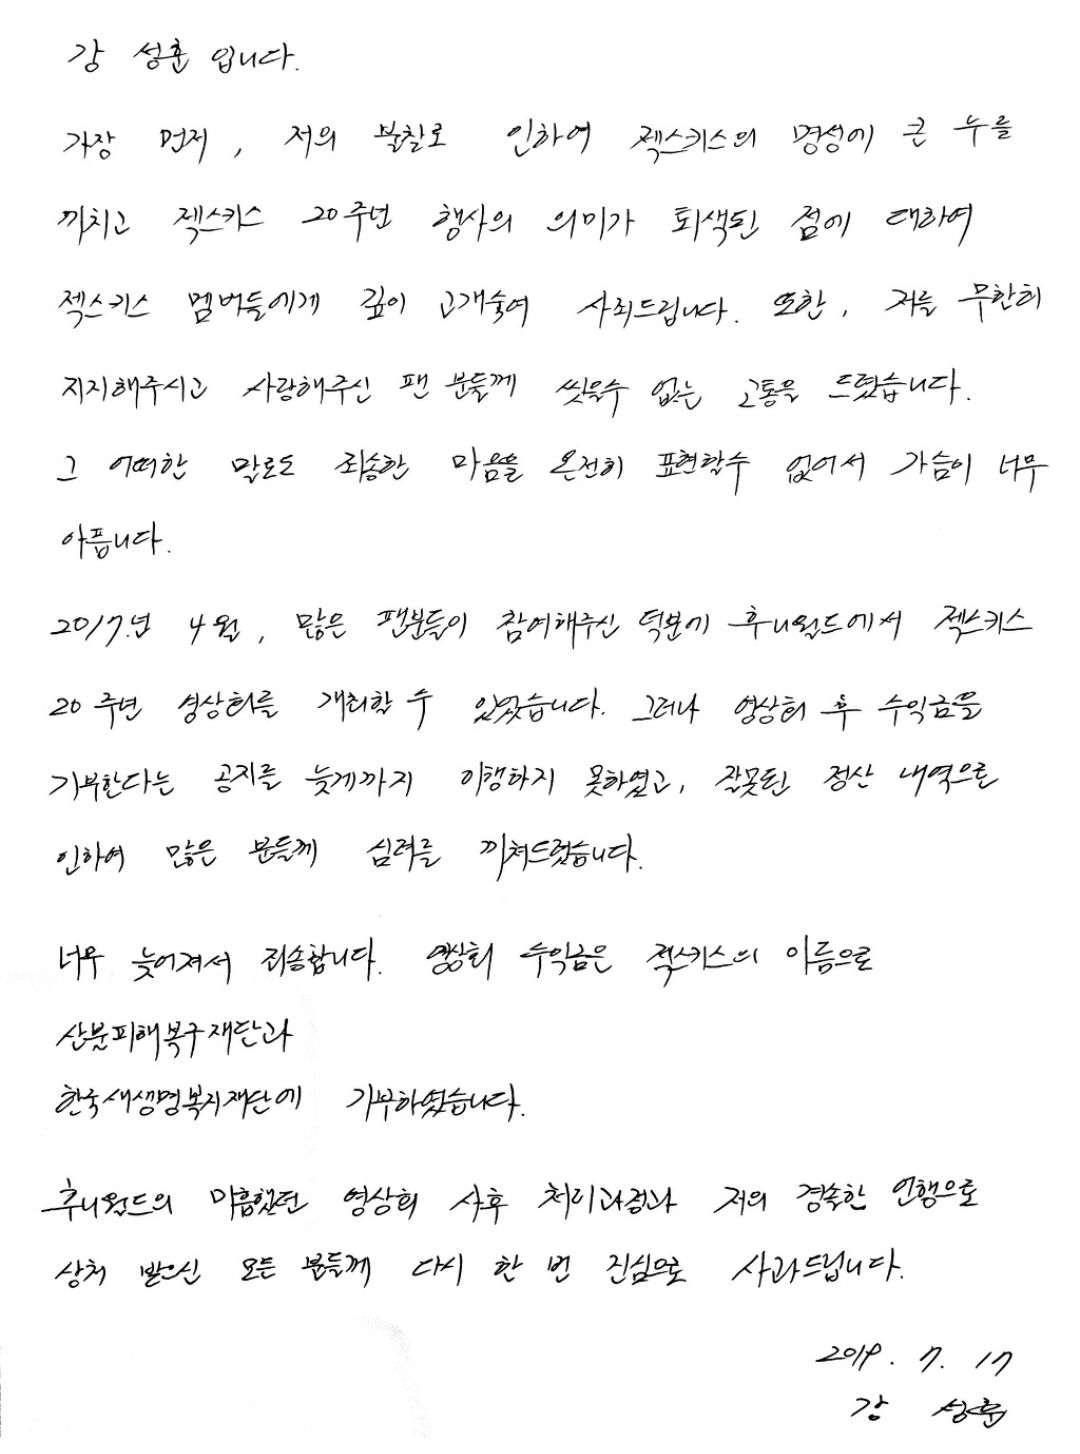 강 성훈 입니다.
가장 먼저, 저의 불찰로 인하여 젝스키스의 명성에 큰 누를
끼치고 젝스키스 20주년 행사의 의미가 퇴색된 점에 대하여
젝스키스 멤버들에게 깊이 고개숙여 사죄드립니다. 또한, 저를 무한히
지지해주시고 사랑해주신 팬 분들께 씻을수 없는 고통을 드렸습니다.
그 어떠한 말로도 죄송한 마음을 온전히 표현할수 없어서 가슴이 너무
아픕니다.
2017.년 4월, 많은 팬분들이 참여해주신 덕분에 후니월드에서 젝스키스
20주년 영상회를 개최할 수 있었습니다. 그러나 영상회 후 수익금을
기부한다는 공지를 늦게까지 이행하지 못하였고, 잘못된 정산 내역으로
인하여 많은 분들께 심려를 끼쳐드렸습니다.
너무 늦어져서 죄송합니다. 영상회 수익금은 젝스키스의 이름으로
산불피해복구재단과
한국새생명복지재단에 기부하였습니다.
후니월드의 미흡했던 영상회 사후 처리과정과 저의 경솔한 언행으로
상처 받으신 모든 분들께 다시 한 번 진심으로 사과드립니다.
2019. 7. 17
강 성훈